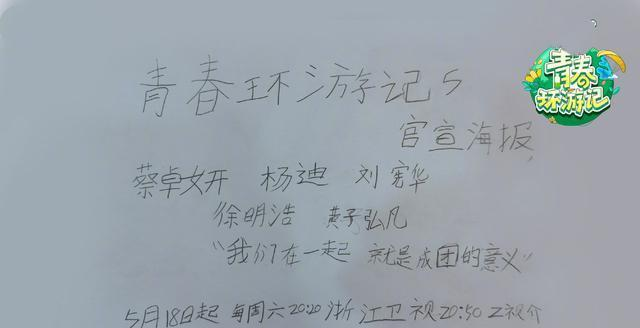 青春环游记5
官宣海报,
蔡卓妍 杨迪 刘宪华
徐明浩 黄子弘凡
"我们在一起 就是成团的意义"
5月18日起 每周六20:20 浙江卫视20:50 Z视介
青春
环游记